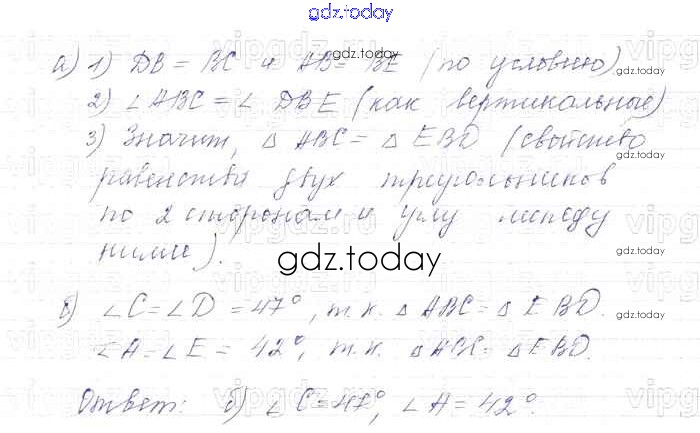 gdz.today
а) 1) DB = BC и AB = BE (по условию)
gdz.today
gdz.today
2) ∠ ABC = ∠ DBE (как вертикальные)
3) Значит, △ ABC = △ EBD (свойство
gdz.today
равенства двух треугольников
по 2 сторонам и углу между
ними).
gdz.today
gdz.today
б) ∠C = ∠D = 47°, т.к. △ ABC = △ EBD.
gdz.today
∠A = ∠E = 42°, т.к. △ ABC = △ EBD.
Ответ: б) ∠C = 47°, ∠A = 42°.
gdz.today